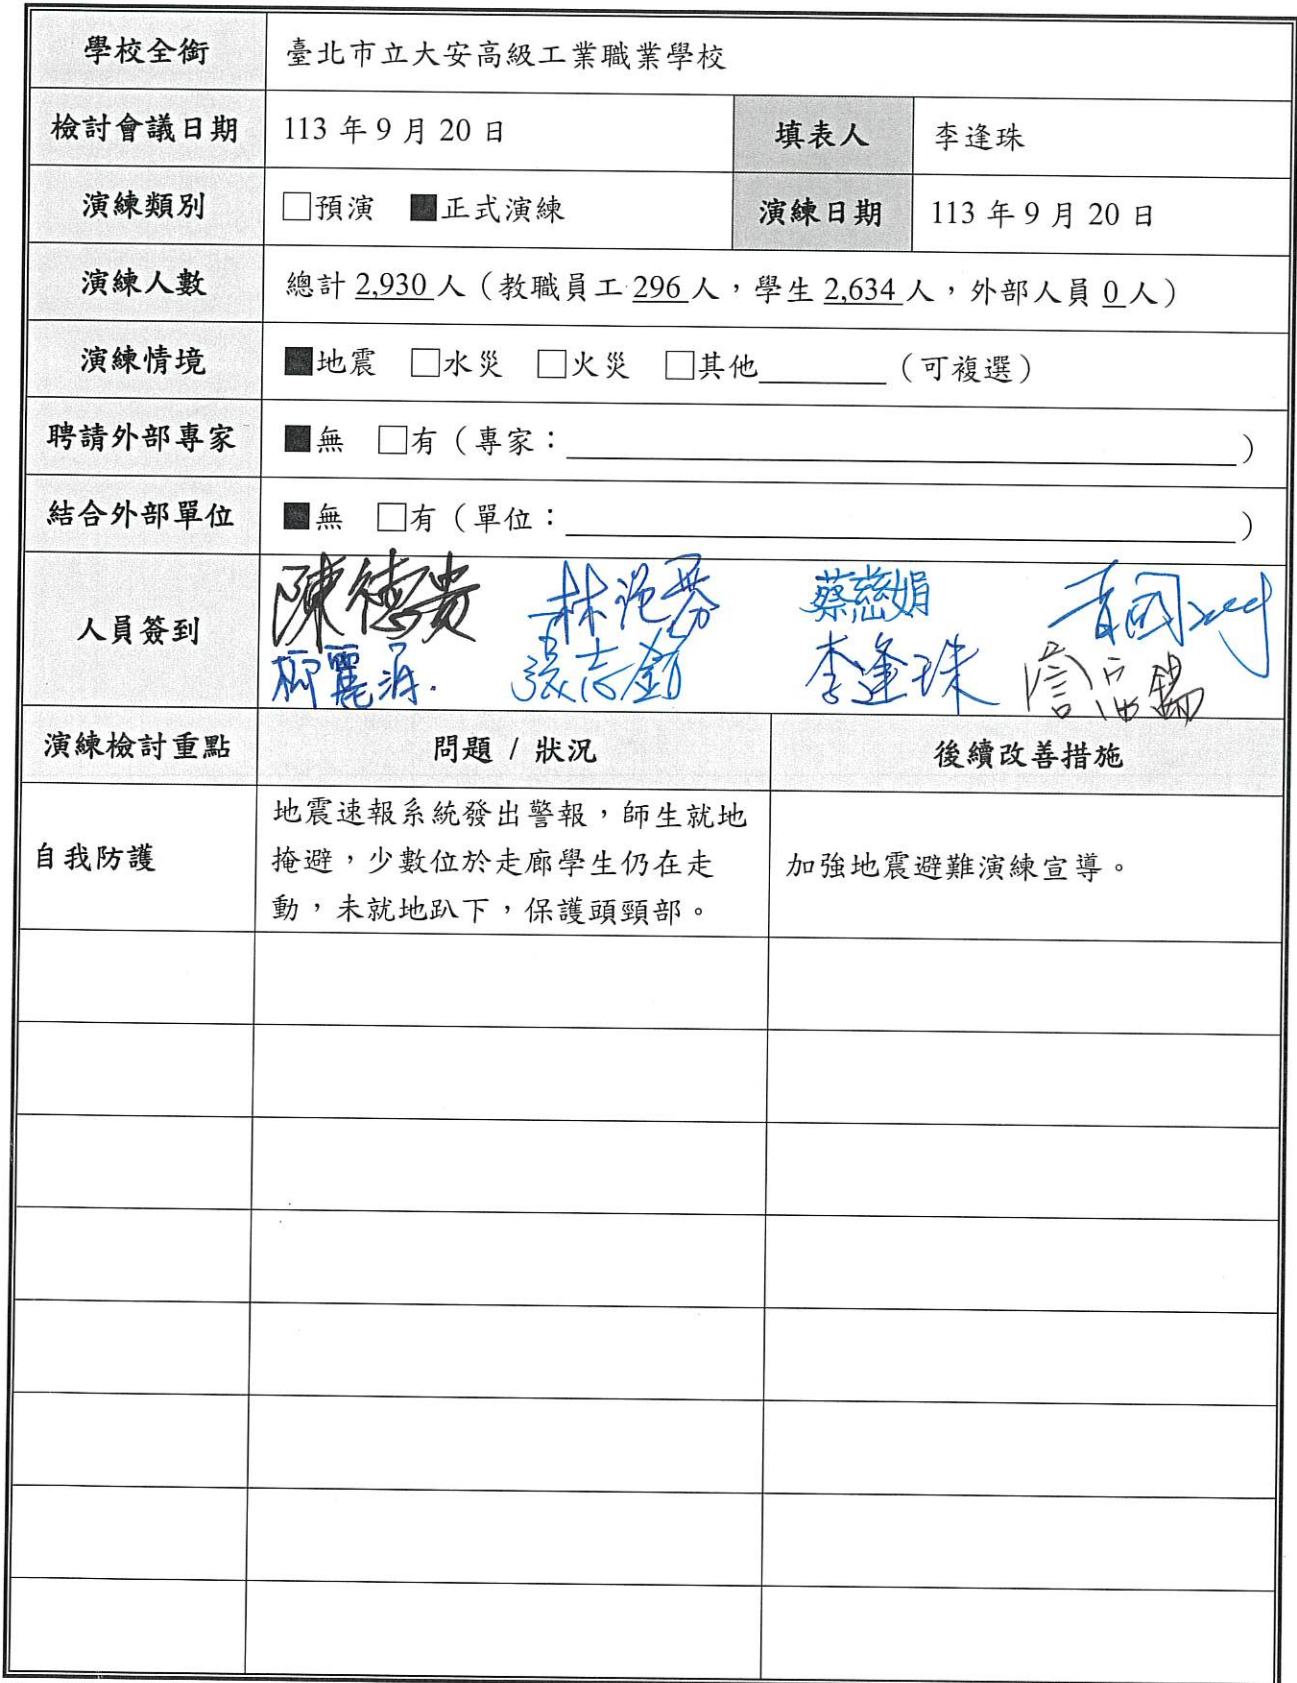 學校全銜 臺北市立大安高級工業職業學校
檢討會議日期 113 年 9 月 20 日 填表人 李逢珠
演練類別 □預演 ■正式演練 演練日期 113 年 9 月 20 日
演練人數 總計 2,930 人（教職員工 296 人，學生 2,634 人，外部人員 0 人）
演練情境 ■地震 □水災 □火災 □其他________（可複選）
聘請外部專家 ■無 □有（專家：________）
結合外部單位 ■無 □有（單位：________）
陳德貴 蔡慈娟
人員簽到
李逢珠
演練檢討重點 問題 / 狀況 後續改善措施
地震速報系統發出警報，師生就地
自我防護 掩避，少數位於走廊學生仍在走 加強地震避難演練宣導。
動，未就地趴下，保護頭頸部。